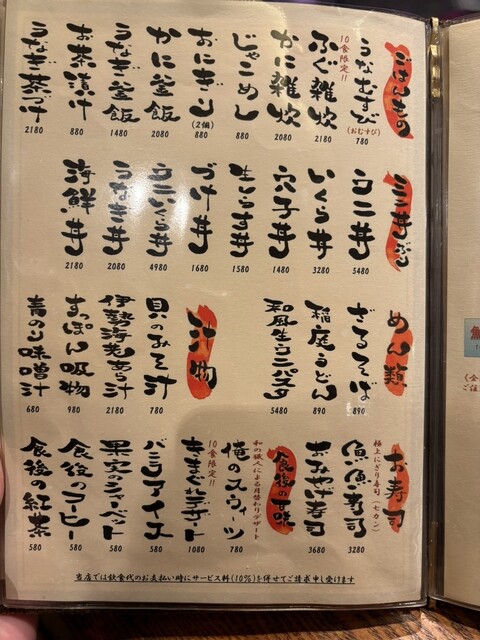 ごはんもの
うなむすび
(おむすび)
780
10食限定!!
ふぐ雑炊
2180
かに雑炊
2080
じゃこめし
880
おにぎり
(2個)
880
かに釜飯
2080
うなぎ釜飯
1480
お茶漬け
880
うなぎ茶づけ
2180
ミニ丼ぶり
ウニ丼
5480
いくら丼
3280
穴子丼
1480
生しらす丼
1580
づけ丼
1680
ウニいくら丼
4980
うなぎ丼
2080
海鮮丼
2180
めん類
ざるそば
890
稲庭うどん
890
和風生ウニパスタ
5480
汁物
貝のみそ汁
780
伊勢海老あら汁
2180
すっぽん吸物
980
青のり味噌汁
680
お寿司
極上にぎり寿司(七カン)
魚魚寿司
3280
おみやげ寿司
3680
食後の甘味
和の職人による月替わりデザート
俺のスウィーツ
780
10食限定!!
きまぐれデザート
1080
バニラアイス
580
果実のシャーベット
580
食後のコーヒー
580
食後の紅茶
580
当店では飲食代のお支払い時にサービス料(10%)を併せてご請求申し受けます